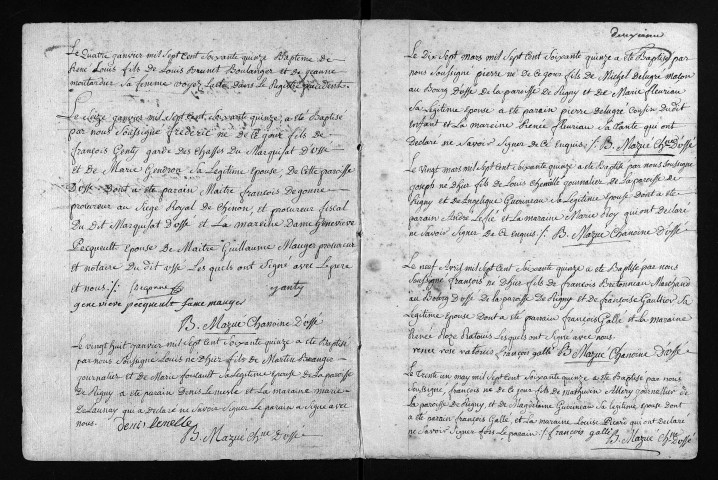 Le Quatre janvier mil Sept Cent Soixante quinze Baptême de
René Louis fils de Louis Brunet Boulanger et de jeanne
moutardier Sa femme voyez l'acte dans le Registre précédent
Le Seize janvier mil Sept Cent Soixante quinze a été Baptisé
par nous Soussigné frederic né de Ce jour fils de
françois Gonty garde des Chasses du Marquisat d'ussé
et de Marie Gendron Sa Legitime Epouse de Cette paroisse
d'ussé dont a été parain Maitre francois Degonne
procureur au Siège Royal de Chinon et procureur fiscal
Du Dit Marquisat d'ussé et La mareine Dame Genevieve
Pecqueult Epouse de Maitre Guillaume Mauger procureur
et notaire du dit ussé Les quels ont Signé avec Le pere
et nous
genevieve pecqueult fame mauger
B. Mazué Chanoine D'ussé
Le vingt huit janvier mil Sept Cent Soixante quinze a été Baptisé
par nous Soussigné Louis né d'hier fils de Martin
journalier et de Marie foucault Sa Legitime épouse de La paroisse
de Rigny a été parain Denis Lemesle et La maraine marie
Delaunay qui a déclaré ne Savoir Signer Le parain a Signé avec
nous. denis lemelle
B. Mazué Chne D'ussé
deuxieme
Le Dix Sept mars mil Sept Cent Soixante quinze a été Baptisé par
nous Soussigné pierre né de Ce jour fils de Michel Delugré maçon
au Bourg d'ussé de la paroisse de Rigny et de Marie fleuriau
Sa Legitime Epouse a été parain pierre Delugré Cousin du dit
Enfant et La mareine Renée fleuriau Sa tante qui ont
declaré ne Savoir Signer de Ce Enquis /. B. Mazué Chne D'ussé
Le vingt mars mil Sept Cent Soixante quinze a été Baptisé par nous Soussigné
joseph né d'hier fils de Louis journalier de La paroisse de
Rigny et de Angelique Guerineau Sa Legitime Epouse dont a été
parain André et La maraine Marie qui ont declaré
ne Savoir Signer de Ce Enquis /. B. Mazué Chanoine D'ussé
Le neuf Avril mil Sept Cent Soixante quinze a été Baptisé par nous
Soussigné françois né d'hier fils de francois Bretonneau Marchand
au Bourg d'ussé de La paroisse de Rigny et de françoise Gaultier Sa
Legitime Epouse dont a été parain francois Gallé et La maraine
Renée Roze Ratouis Lesquels ont Signé avec nous
renee rose ratouis françois gallé B. Mazué Chanoine D'ussé
Le trente un may mil Sept Cent Soixante quinze a été Baptisé par nous
Soussigné, françois né de Ce jour fils de mathurin journalier de
La paroisse de Rigny, et de Magdelaine Sa Legitime Epouse dont
a été parain françois Gallé, et La maraine Louise Picard qui ont declaré
ne Savoir Signer fors Le parain /. francois gallé
B. Mazué Chne D'ussé